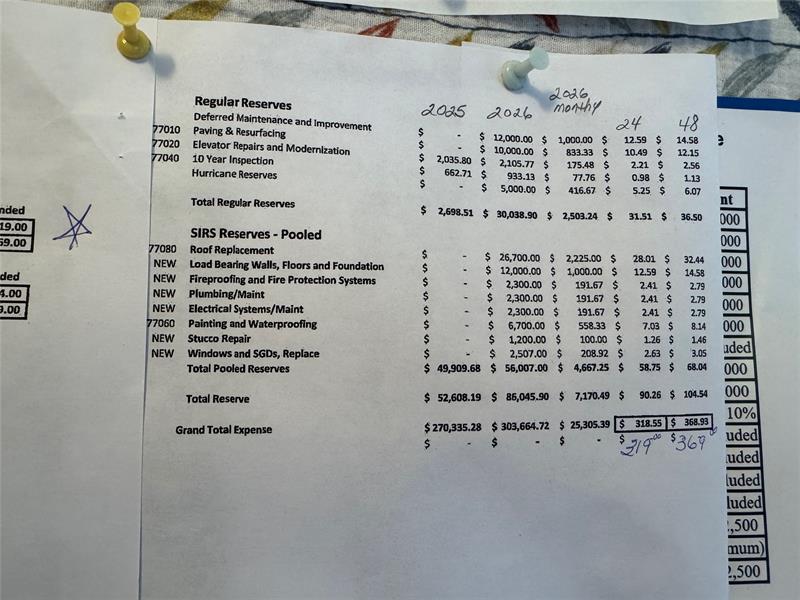 Regular Reserves 2025 2026 2026 monthly 24 48
Deferred Maintenance and Improvement $ - $ 12,000.00 $ 1,000.00 $ 12.59 $ 14.58
77010 Paving & Resurfacing $ - $ 10,000.00 $ 833.33 $ 10.49 $ 12.15
77020 Elevator Repairs and Modernization $ 2,035.80 $ 2,105.77 $ 175.48 $ 2.21 $ 2.56
77040 10 Year Inspection $ 662.71 $ 933.13 $ 77.76 $ 0.98 $ 1.13
Hurricane Reserves $ - $ 5,000.00 $ 416.67 $ 5.25 $ 6.07
Total Regular Reserves $ 2,698.51 $ 30,038.90 $ 2,503.24 $ 31.51 $ 36.50
SIRS Reserves - Pooled
77080 Roof Replacement $ - $ 26,700.00 $ 2,225.00 $ 28.01 $ 32.44
NEW Load Bearing Walls, Floors and Foundation $ - $ 12,000.00 $ 1,000.00 $ 12.59 $ 14.58
NEW Fireproofing and Fire Protection Systems $ - $ 2,300.00 $ 191.67 $ 2.41 $ 2.79
NEW Plumbing/Maint $ - $ 2,300.00 $ 191.67 $ 2.41 $ 2.79
NEW Electrical Systems/Maint $ - $ 2,300.00 $ 191.67 $ 2.41 $ 2.79
77060 Painting and Waterproofing $ - $ 6,700.00 $ 558.33 $ 7.03 $ 8.14
NEW Stucco Repair $ - $ 1,200.00 $ 100.00 $ 1.26 $ 1.46
NEW Windows and SGDs, Replace $ - $ 2,507.00 $ 208.92 $ 2.63 $ 3.05
Total Pooled Reserves $ 49,909.68 $ 56,007.00 $ 4,667.25 $ 58.75 $ 68.04
Total Reserve $ 52,608.19 $ 86,045.90 $ 7,170.49 $ 90.26 $ 104.54
Grand Total Expense $ 270,335.28 $ 303,664.72 $ 25,305.39 $ 318.55 $ 368.93
$ - $ - $ - $ 319.00 $ 369
nded
19.00
59.00
ded
4.00
9.00
e
nt
000
000
000
000
000
000
uded
000
000
10%
uded
uded
luded
luded
,500
mum)
2,500